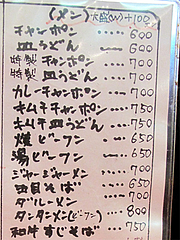 (メン) 大盛(W)+100
チャンポン ····· 600
皿うどん ····· 600
特製 チャンポン ···· 700
特製 皿うどん ···· 700
カレーチャンポン ···· 700
キムチチャンポン ···· 750
キムチ皿うどん ···· 750
焼ビーフン ····· 650
湯ビーフン ····· 650
ジャージャーメン ···· 700
五目そば ····· 650
ダルーメン ····· 700
タンタンメン(ビーフン) ··· 800
和牛すじそば ···· 750